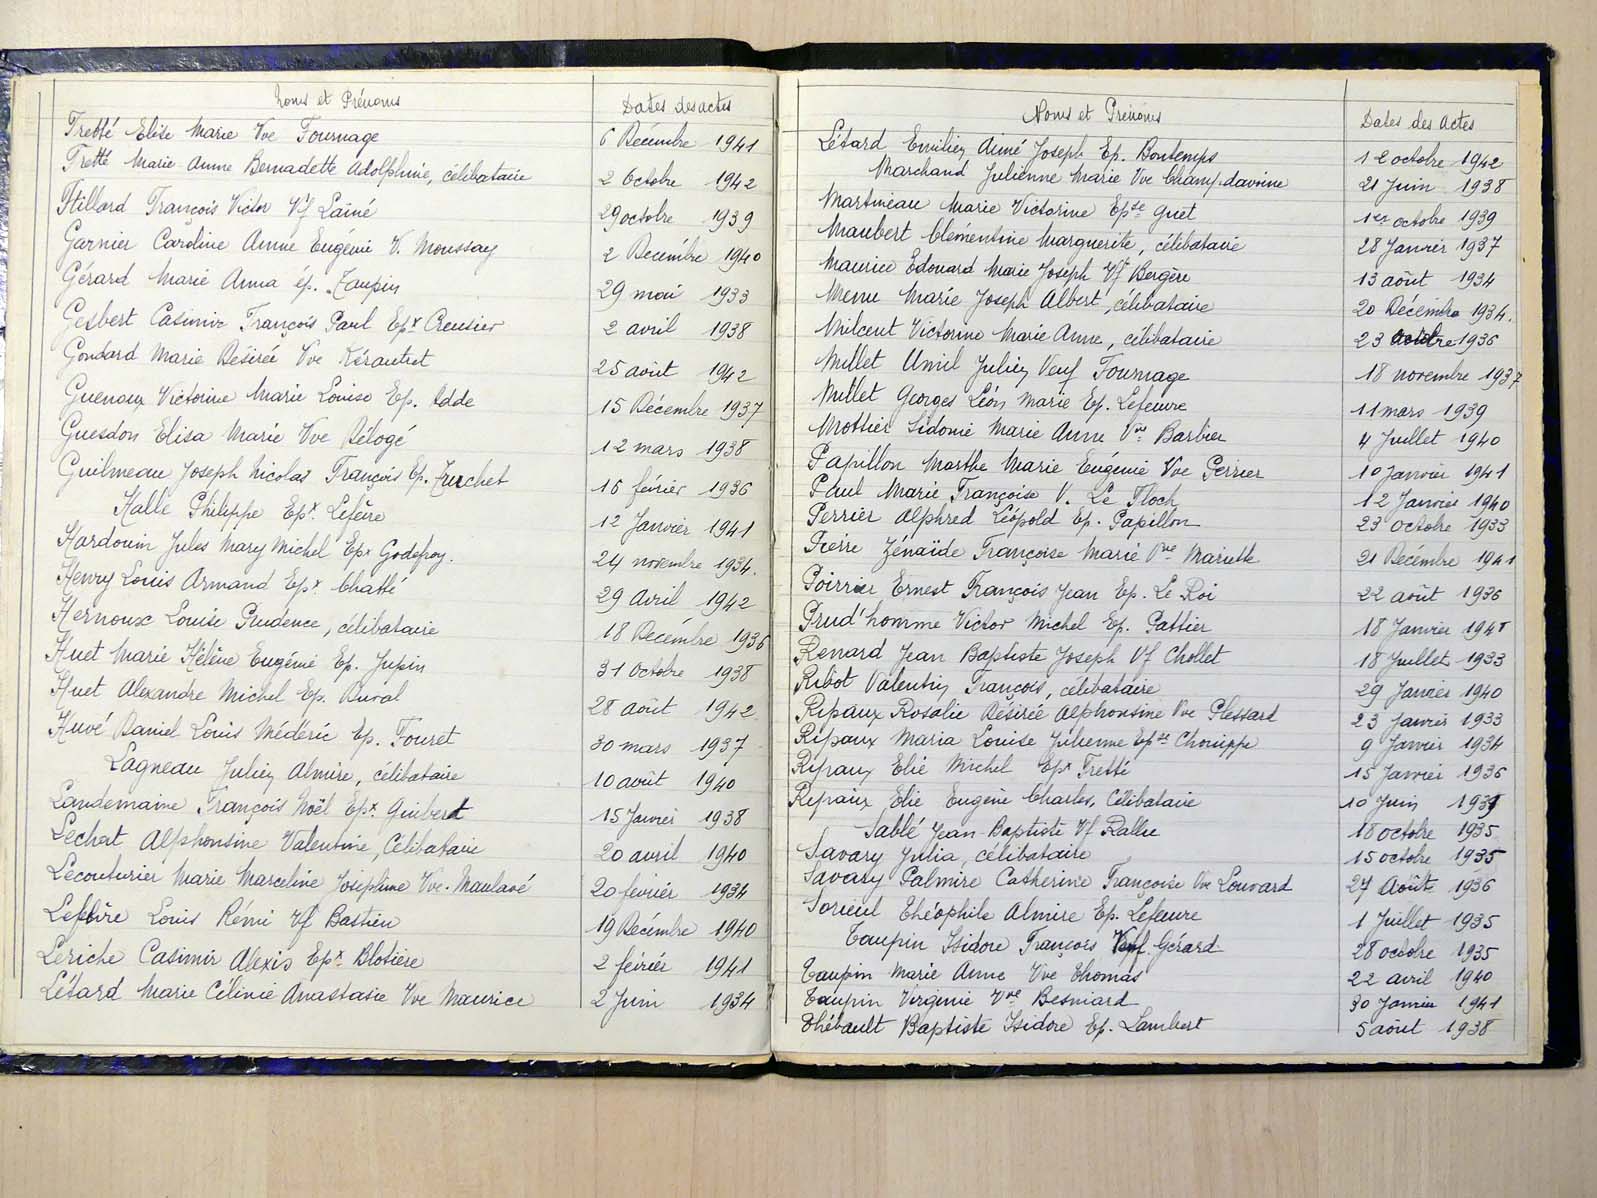 Noms et Prénoms Dates des actes
Tretté Elise Marie Vve Fournage 6 Decembre 1941
Tretté Marie Anne Bernadette Adolphine, célibataire 2 Octobre 1942
François Victor Vf Lainé 29 octobre 1939
Garnier Caroline Anne Eugénie V. Moussay 2 Decémbre 1940
Gérard Marie Anna ép. Taupin 29 mai 1933
Gesbert Casimir François Paul Epx Creusier 2 avril 1938
Gondard Marie Désirée Vve Kérautret 25 août 1942
Guenaux Victorine Marie Louise Ep. Adde 15 Décembre 1937
Guesdon Élisa Marie Vve Délogé 12 mars 1938
Guilmeau Joseph Nicolas François Ep. 16 février 1936
Hallé Philippe Epx. Lefèvre 12 Janvier 1941
Hardouin Jules Mary Michel Epx Godefroy. 24 novembre 1934.
Henry Louis Armand Epx. Chatté 29 Avril 1942
Hernoux Louise Prudence, célibataire 18 Decémbre 1936
Huet Marie Hélène Eugénie Ep. Jupin 31 Octobre 1938
Huet Alexandre Michel Ep. Duval 28 août 1942
Huvé Daniel Louis Médéric Ep. Fouret 30 mars 1937
Lagneau Julien Almire, célibataire 10 août 1940
Landemaine François Noël Epx. Guibert 15 Janvier 1938
Lechat Alphonsine Valentine, Célibataire 20 avril 1940
Lecouturier Marie Marceline Joséphine Vve. Maulavé 20 février 1934
Lefèvre Louis Rémi Vf Bastien 19 Décémbre 1940
Leriche Casimir Alexis Epx. Blotière 2 février 1941
Létard Marie Célinie Anastasie Vve Maurice 2 Juin 1934
Noms et Prénoms Dates des Actes
Létard Emilien Aimé Joseph Ep. Bontemps 12 octobre 1942
Marchand Julienne Marie Vve Champdavoine 21 Juin 1938
Martineau Marie Victorine Epse Guet 1er octobre 1939
Maubert Clémentine Marguerite, célibataire 28 Janvier 1937
Maurice Edouard Marie Joseph Vf Bergère 13 août 1934
Menu Marie Joseph Albert, célibataire 20 Décémbre 1934.
Milcent Victorine Marie Anne, célibataire 23 octobre 1936
Millet Julien Veuf Fournage 18 novembre 1937
Millet Georges Léon Marie Ep. Lefeuvre 11 mars 1939
Mottier Sidonie Marie Anne Vve Barbier 4 Juillet 1940
Papillon Marthe Marie Eugénie Vve Perrier 10 Janvier 1941
Paul Marie Françoise V. Le Floch 12 Janvier 1940
Perrier Alphred Léopold Ep. Papillon 23 octobre 1933
Pierre Zénaïde Françoise Marie Vve Mariette 21 Décémbre 1941
Poirrier Ernest François Jean Ep. Le Roi 22 août 1936
Prud'homme Victor Michel Ep. Pattier 18 Janvier 1941
Renard Jean Baptiste Joseph Vf Chollet 18 Juillet 1933
Ribot Valentin François, célibataire 29 Janvier 1940
Ripaux Rosalie Désirée Alphonsine Vve Plessard 23 Janvier 1933
Ripaux Maria Louise Julienne Epse Chouippe 9 Janvier 1934
Ripaux Elie Michel Epx Tretté 15 Janvier 1936
Ripaux Elie Eugène Charles, Célibataire 10 Juin
Sablé Jean-Baptiste Vf Rallu 18 octobre 1935
Savary Julia, célibataire 15 octobre 1935
Savary Palmire Catherine Françoise Vve Louvard 27 Août 1936
Sorieul Théophile Almire Ep. Lefeuvre 1 Juillet 1935
Taupin Isidore François Veuf Gérard 28 octobre 1935
Taupin Marie Anne Vve Thomas 22 avril 1940
Taupin Virginie Vve Besniard 30 Janvier 1941
Thébault Baptiste Isidore Ep. Lambert 5 août 1938